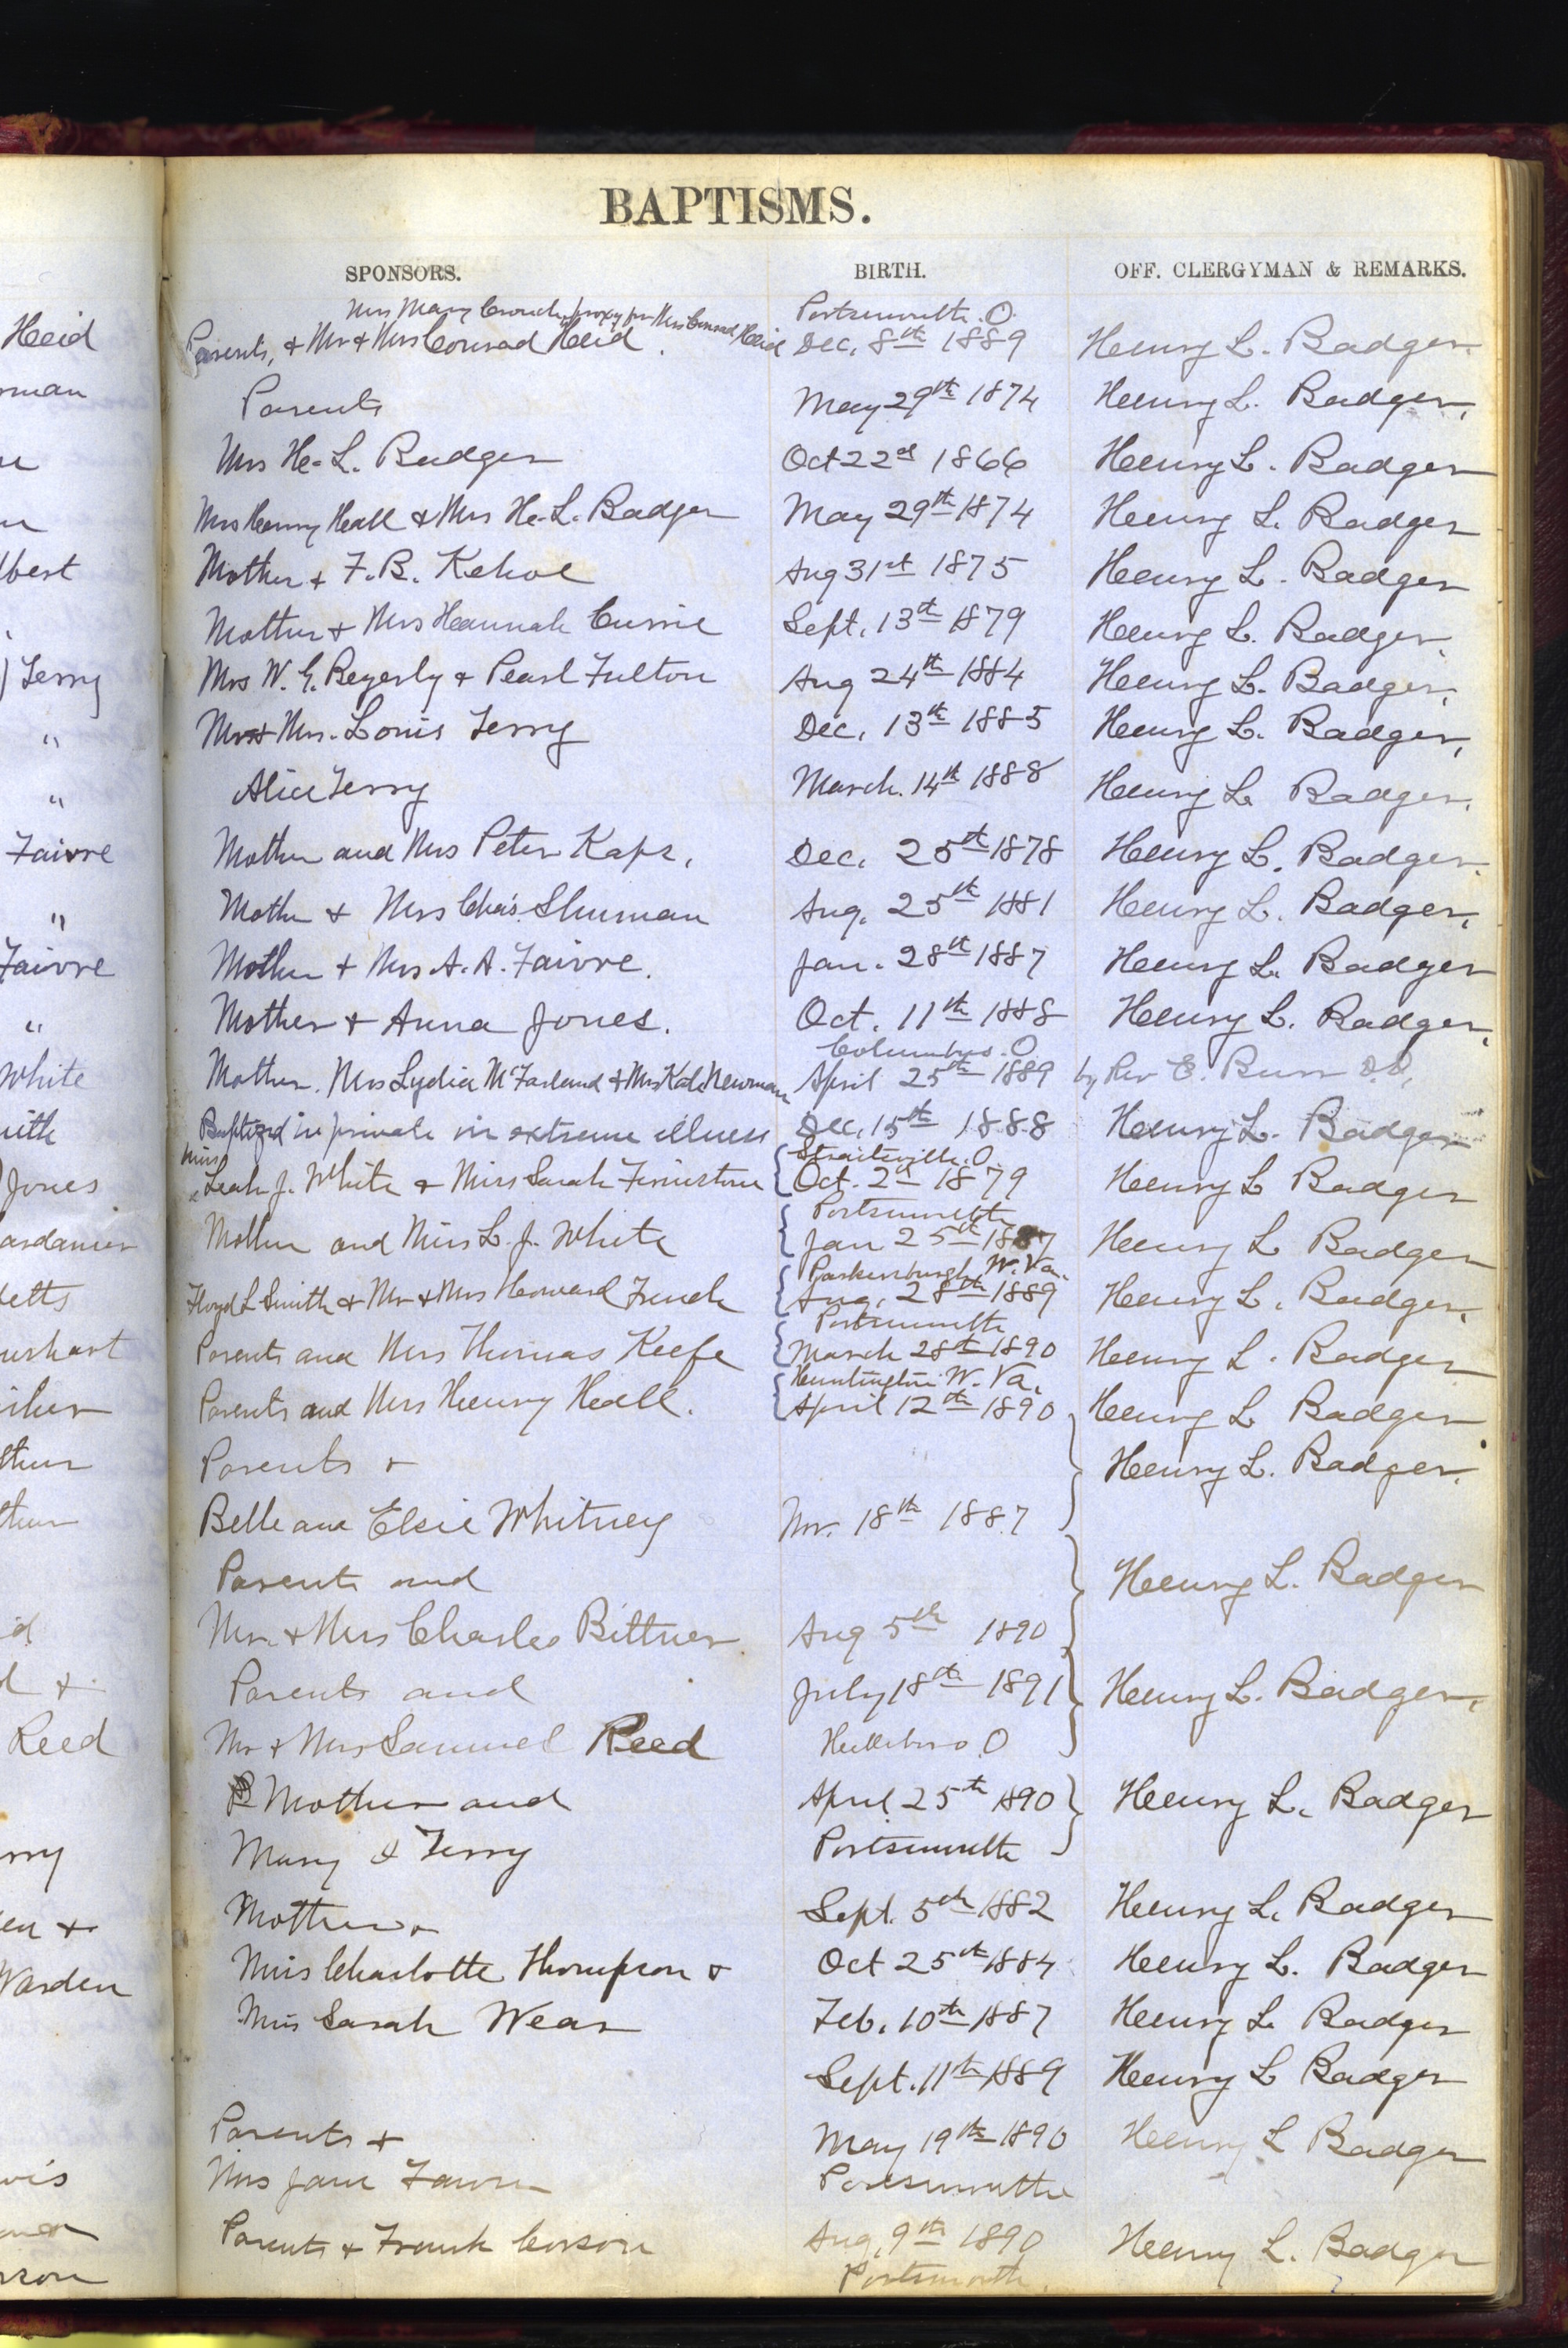 BAPTISMS.
SPONSORS. BIRTH. OFF. CLERGYMAN & REMARKS.
Mrs Mary Crouch, proxy for Mrs Conrad Heid Portsmouth. O.
Heid Parents, & Mr & Mrs Conrad Heid. Dec. 8th 1889 Henry L. Badger.
rman Parents May 29th 1874 Henry L. Badger.
Mrs H. L. Badger Oct 22d 1866 Henry L. Badger
Mrs Henry Hall & Mrs H. L. Badger May 29th 1874 Henry L. Badger
lbert Mother & F. B. Kehoe Aug 31st 1875 Henry L. Badger
Mother & Mrs Hannah Currie Sept. 13th 1879 Henry L. Badger.
) Terry Mrs W. G. Beyerly & Pearl Fulton Aug 24th 1884 Henry L. Badger.
" Mr & Mrs. Louis Terry Dec. 13th 1885 Henry L. Badger.
" Alice Terry March. 14th 1888 Henry L. Badger.
Faivre Mother and Mrs Peter Kaps. Dec. 25th 1878 Henry L. Badger.
" Mother & Mrs Chas. Shuman Aug. 25th 1881 Henry L. Badger.
Faivre Mother & Mrs A. A. Faivre. Jan. 28th 1887 Henry L. Badger
" Mother & Anna Jones. Oct. 11th 1888 Henry L. Badger.
Columbus. O.
White Mother. Mrs Lydia McFarland & Mrs Kate Newman April 25th 1889 by Rev E. Burr D.D.
ith Baptized in private in extreme illness Dec. 15th 1888 Henry L. Badger
Miss Straitsville. O.
Jones Leah J. White & Miss Sarah Finistone Oct. 2d 1879 Henry L Badger
Portsmouth
ardamer Mother and Miss L. J. White Jan 25th 1887 Henry L Badger
Parkersburgh, W. Va.
etts Floyd L Smith & Mr & Mrs Howard French Aug. 28th 1889 Henry L. Badger.
Portsmouth
urhart Parents and Mrs Thomas Keefe March 28th 1890 Henry L. Badger
Huntington W. Va.
isher Parents and Mrs Henry Hall. April 12th 1890 Henry L Badger
thur Parents & Henry L. Badger.
thur Belle and Elsie Whitney Nov. 18th 1887
Parents and Henry L. Badger
d Mr. & Mrs Charles Bittner. Aug 5th 1890
d & Parents and July 18th 1891 Henry L. Badger.
Reed Mr & Mrs Samuel Reed Hillsboro. O
Mother and April 25th 1890 Henry L. Badger
rry Mary & Terry Portsmouth
en & Mother & Sept. 5th 1882 Henry L. Badger
Warden Miss Charlotte Thompson & Oct 25th 1884 Henry L. Badger
Miss Sarah Wear Feb. 10th 1887 Henry L. Badger
Sept. 11th 1889 Henry L Badger
Parents & May 19th 1890 Henry L Badger
vis Mrs Jane Portsmouth
Parents & Frank Corson Aug. 9th 1890 Henry L. Badger
rson Portsmouth.